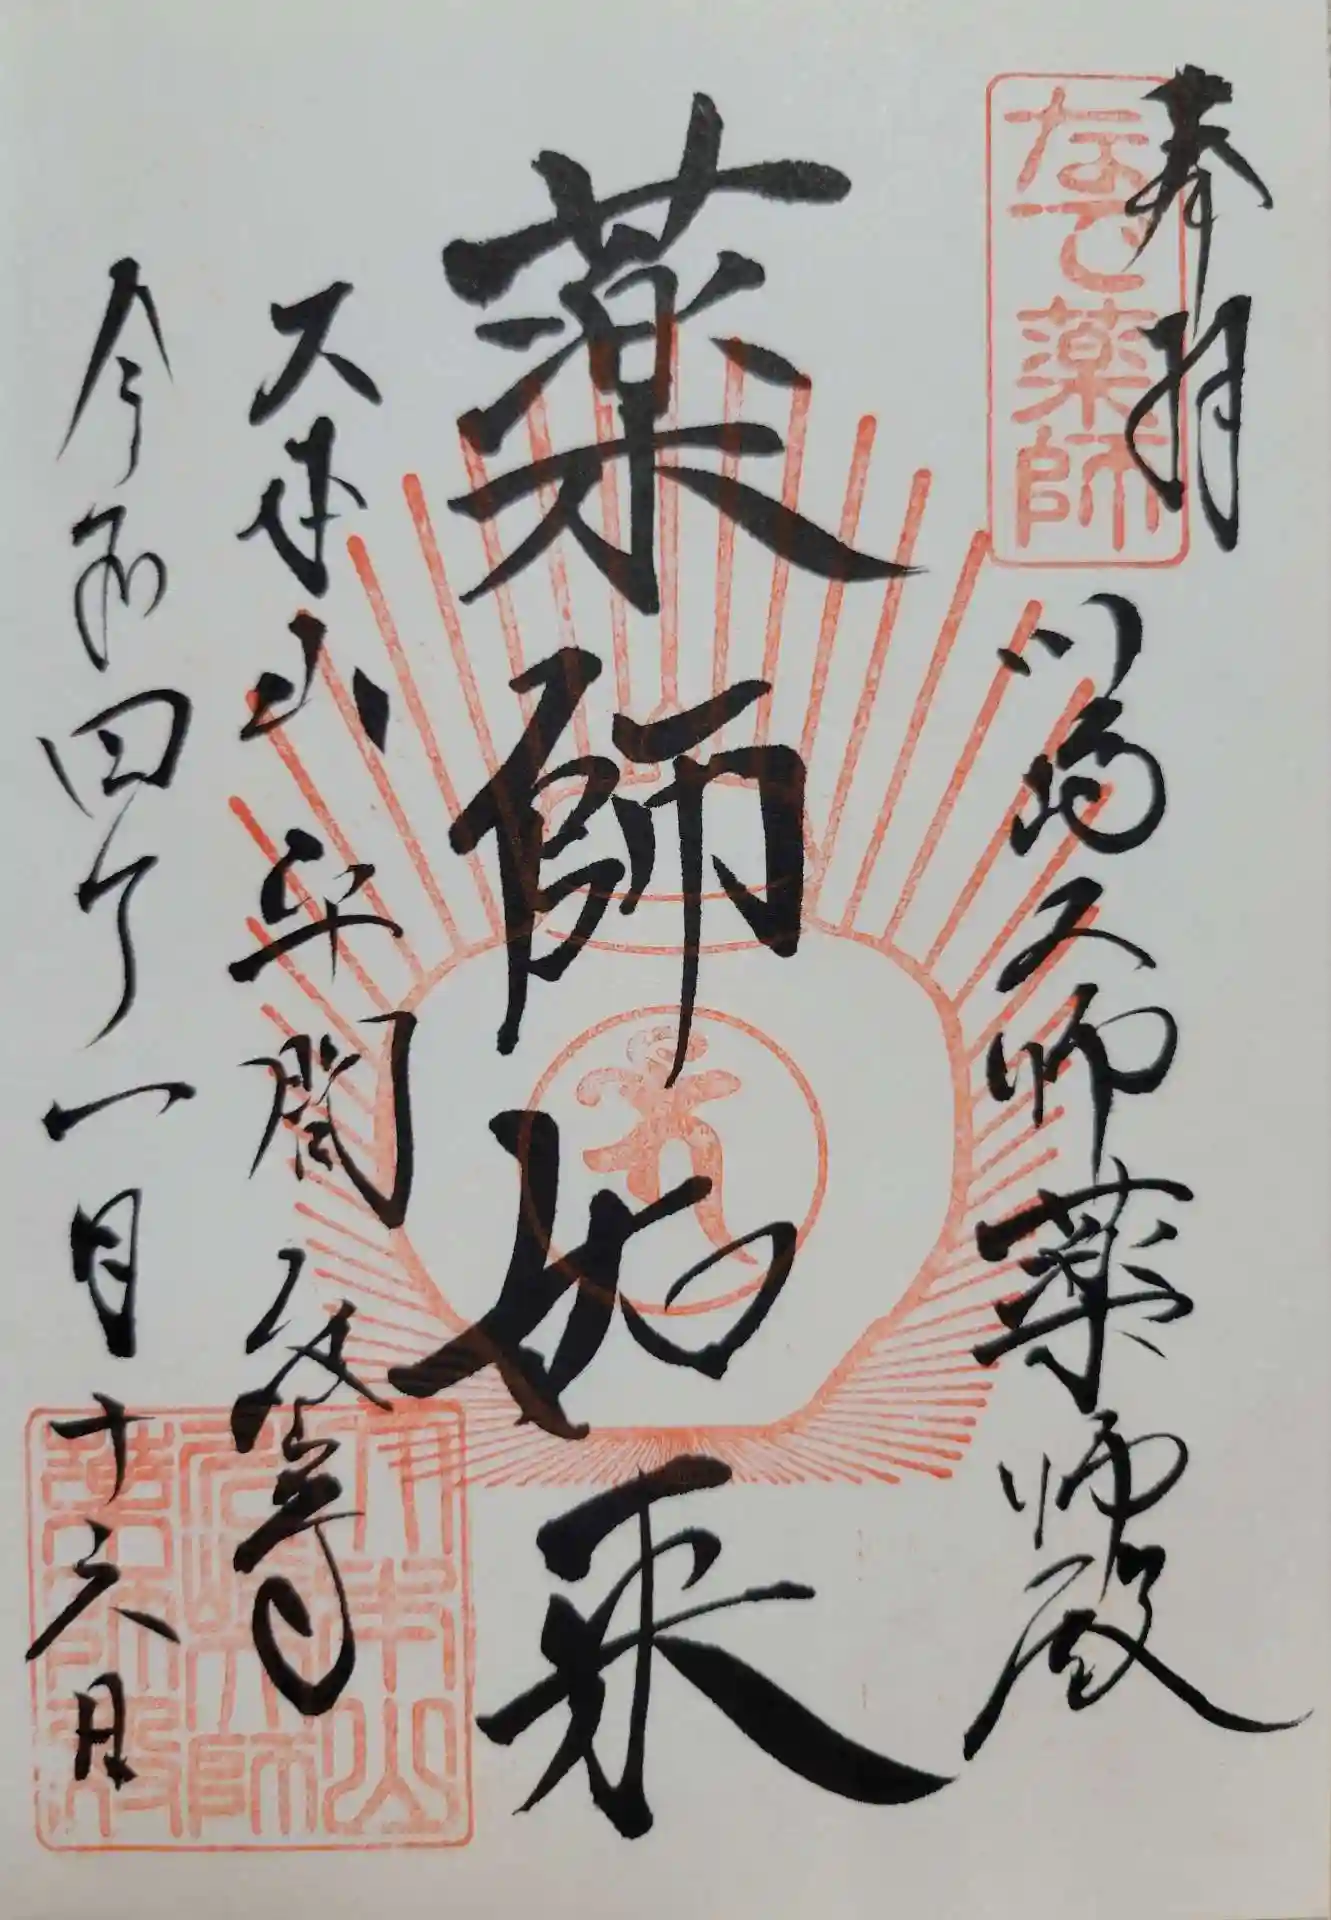 奉拝
なで薬師
川崎大師薬師殿
薬師如来
大本山平間寺
令和四年一月十六日
大本山
川崎大師
薬師殿